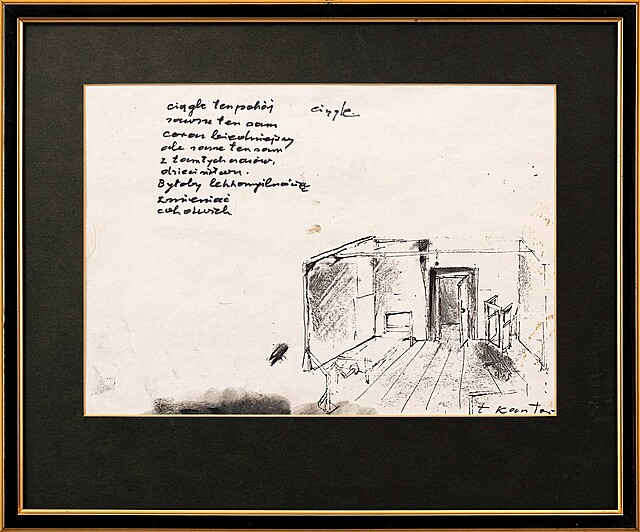 ciągle ten pokój
ciągle
zawsze ten sam
coraz biedniejszy
ale zawsze ten sam
z tamtych czasów,
dzieciństwa.
Byłoby lekkomyślnością
zmieniać
cokolwiek
t. Kantor